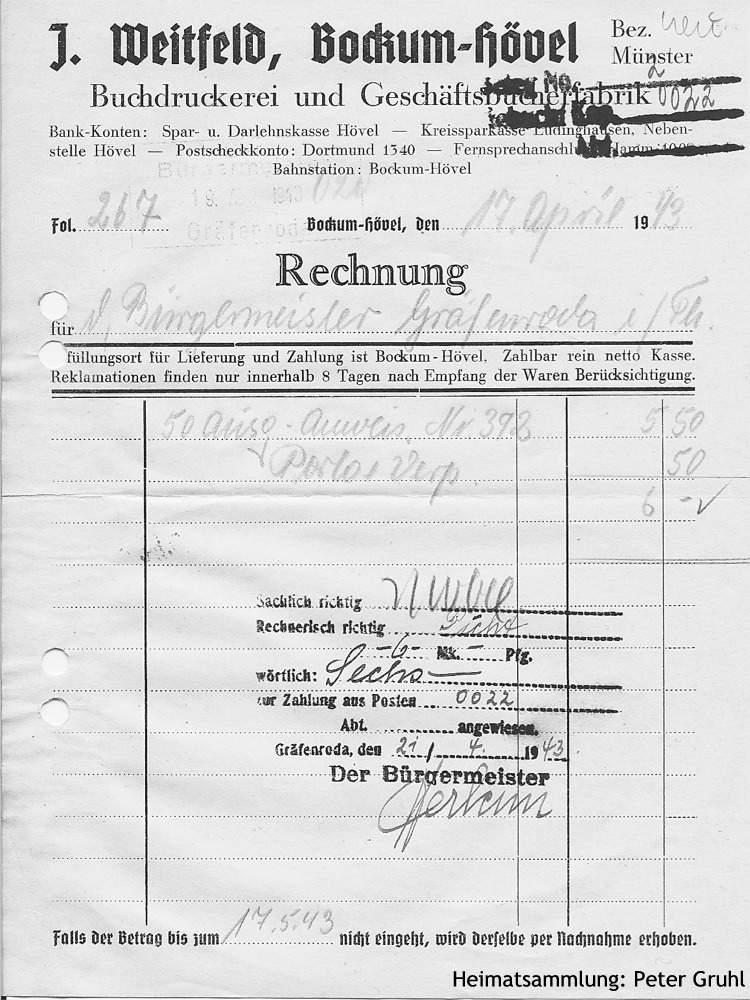 J. Weitfeld, Bockum-Hövel
Bez.
Münster
Buchdruckerei und Geschäftsbücherfabrik
2
0022
Bank-Konten: Spar- u. Darlehnskasse Hövel — Kreissparkasse Lüdinghausen, Neben-
stelle Hövel — Postscheckkonto: Dortmund 1340 — Fernsprechanschluß Hamm
Bahnstation: Bockum-Hövel
Fol. 267
Bockum-Hövel, den 17. April 1943
Rechnung
für d. Bürgermeister Gräfenroda i/Th.
füllungsort für Lieferung und Zahlung ist Bockum-Hövel. Zahlbar rein netto Kasse.
Reklamationen finden nur innerhalb 8 Tagen nach Empfang der Waren Berücksichtigung.
50 Ausg.-Anweis. Nr 392 5 50
Porto + Verp. 50
6 -
Sachlich richtig
Rechnerisch richtig
-6- Mk. - Pfg.
wörtlich: Sechs
zur Zahlung aus Posten 0022
Abt. angewiesen.
Gräfenroda, den 21 / 4. 1943.
Der Bürgermeister
Falls der Betrag bis zum 17.5.43 nicht eingeht, wird derselbe per Nachnahme erhoben.
Heimatsammlung: Peter Gruhl